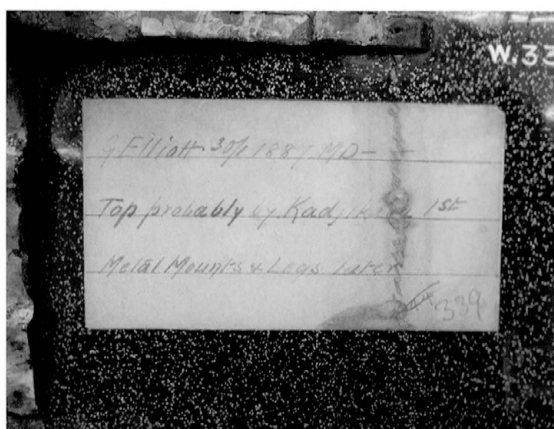 W.33
G Elliott 30/1 1887 MD -
Top probably by 1st
Metal Mounts & Legs later
339